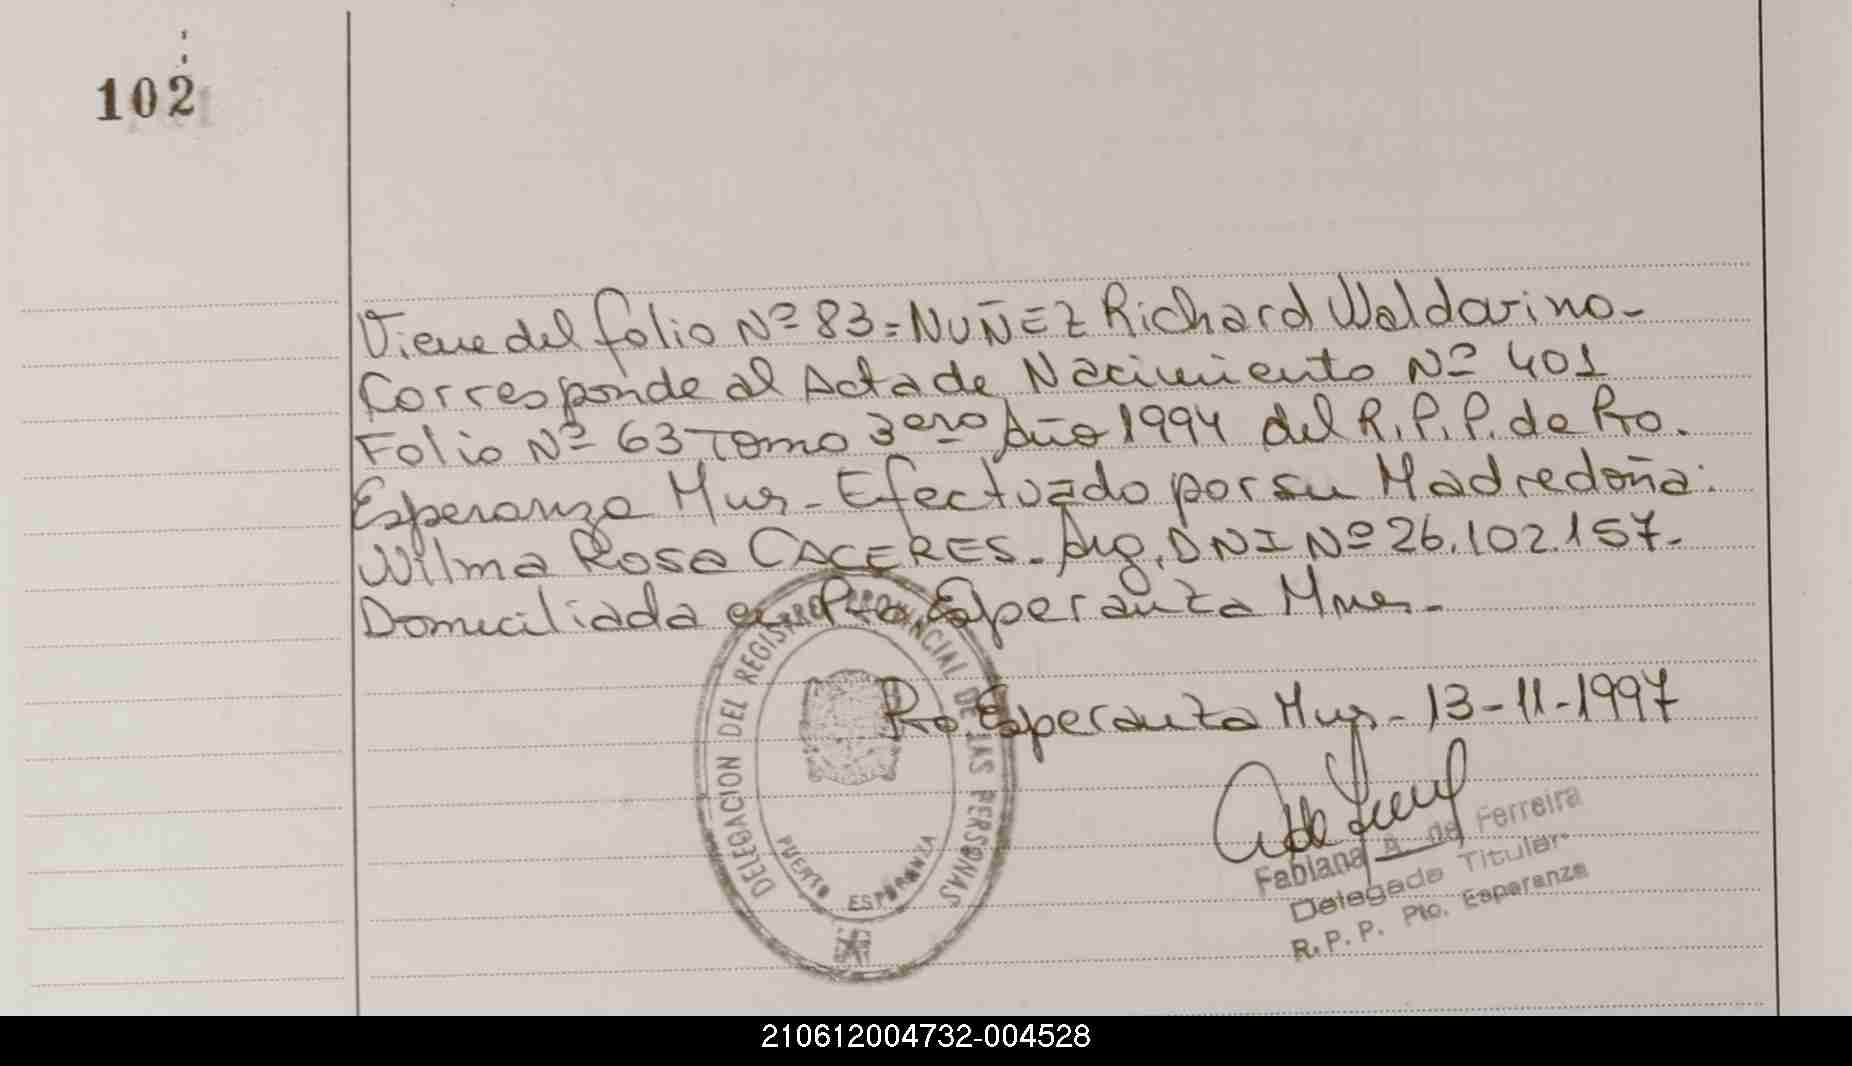 102
Viene del folio Nº 83 = NUÑEZ Richard Waldarino-
Corresponde al Acta de Nacimiento Nº 401
Folio Nº 63 Tomo 3ero Año 1994 del R.P.P. de Pto.
Esperanza Mnes - Efectuado por su Madre doña:
Wilma Rosa CACERES - Arg. DNI Nº 26.102.157-
Domiciliada en Pto. Esperanza Mnes.-
Pto. Esperanza Mnes - 13-11-1997
DELEGACION DEL REGISTRO PROVINCIAL DE LAS PERSONAS
PUERTO ESPERANZA
Fabiana A. de Ferreira
Delegada Titular
R.P.P. Pto. Esperanza
210612004732-004528